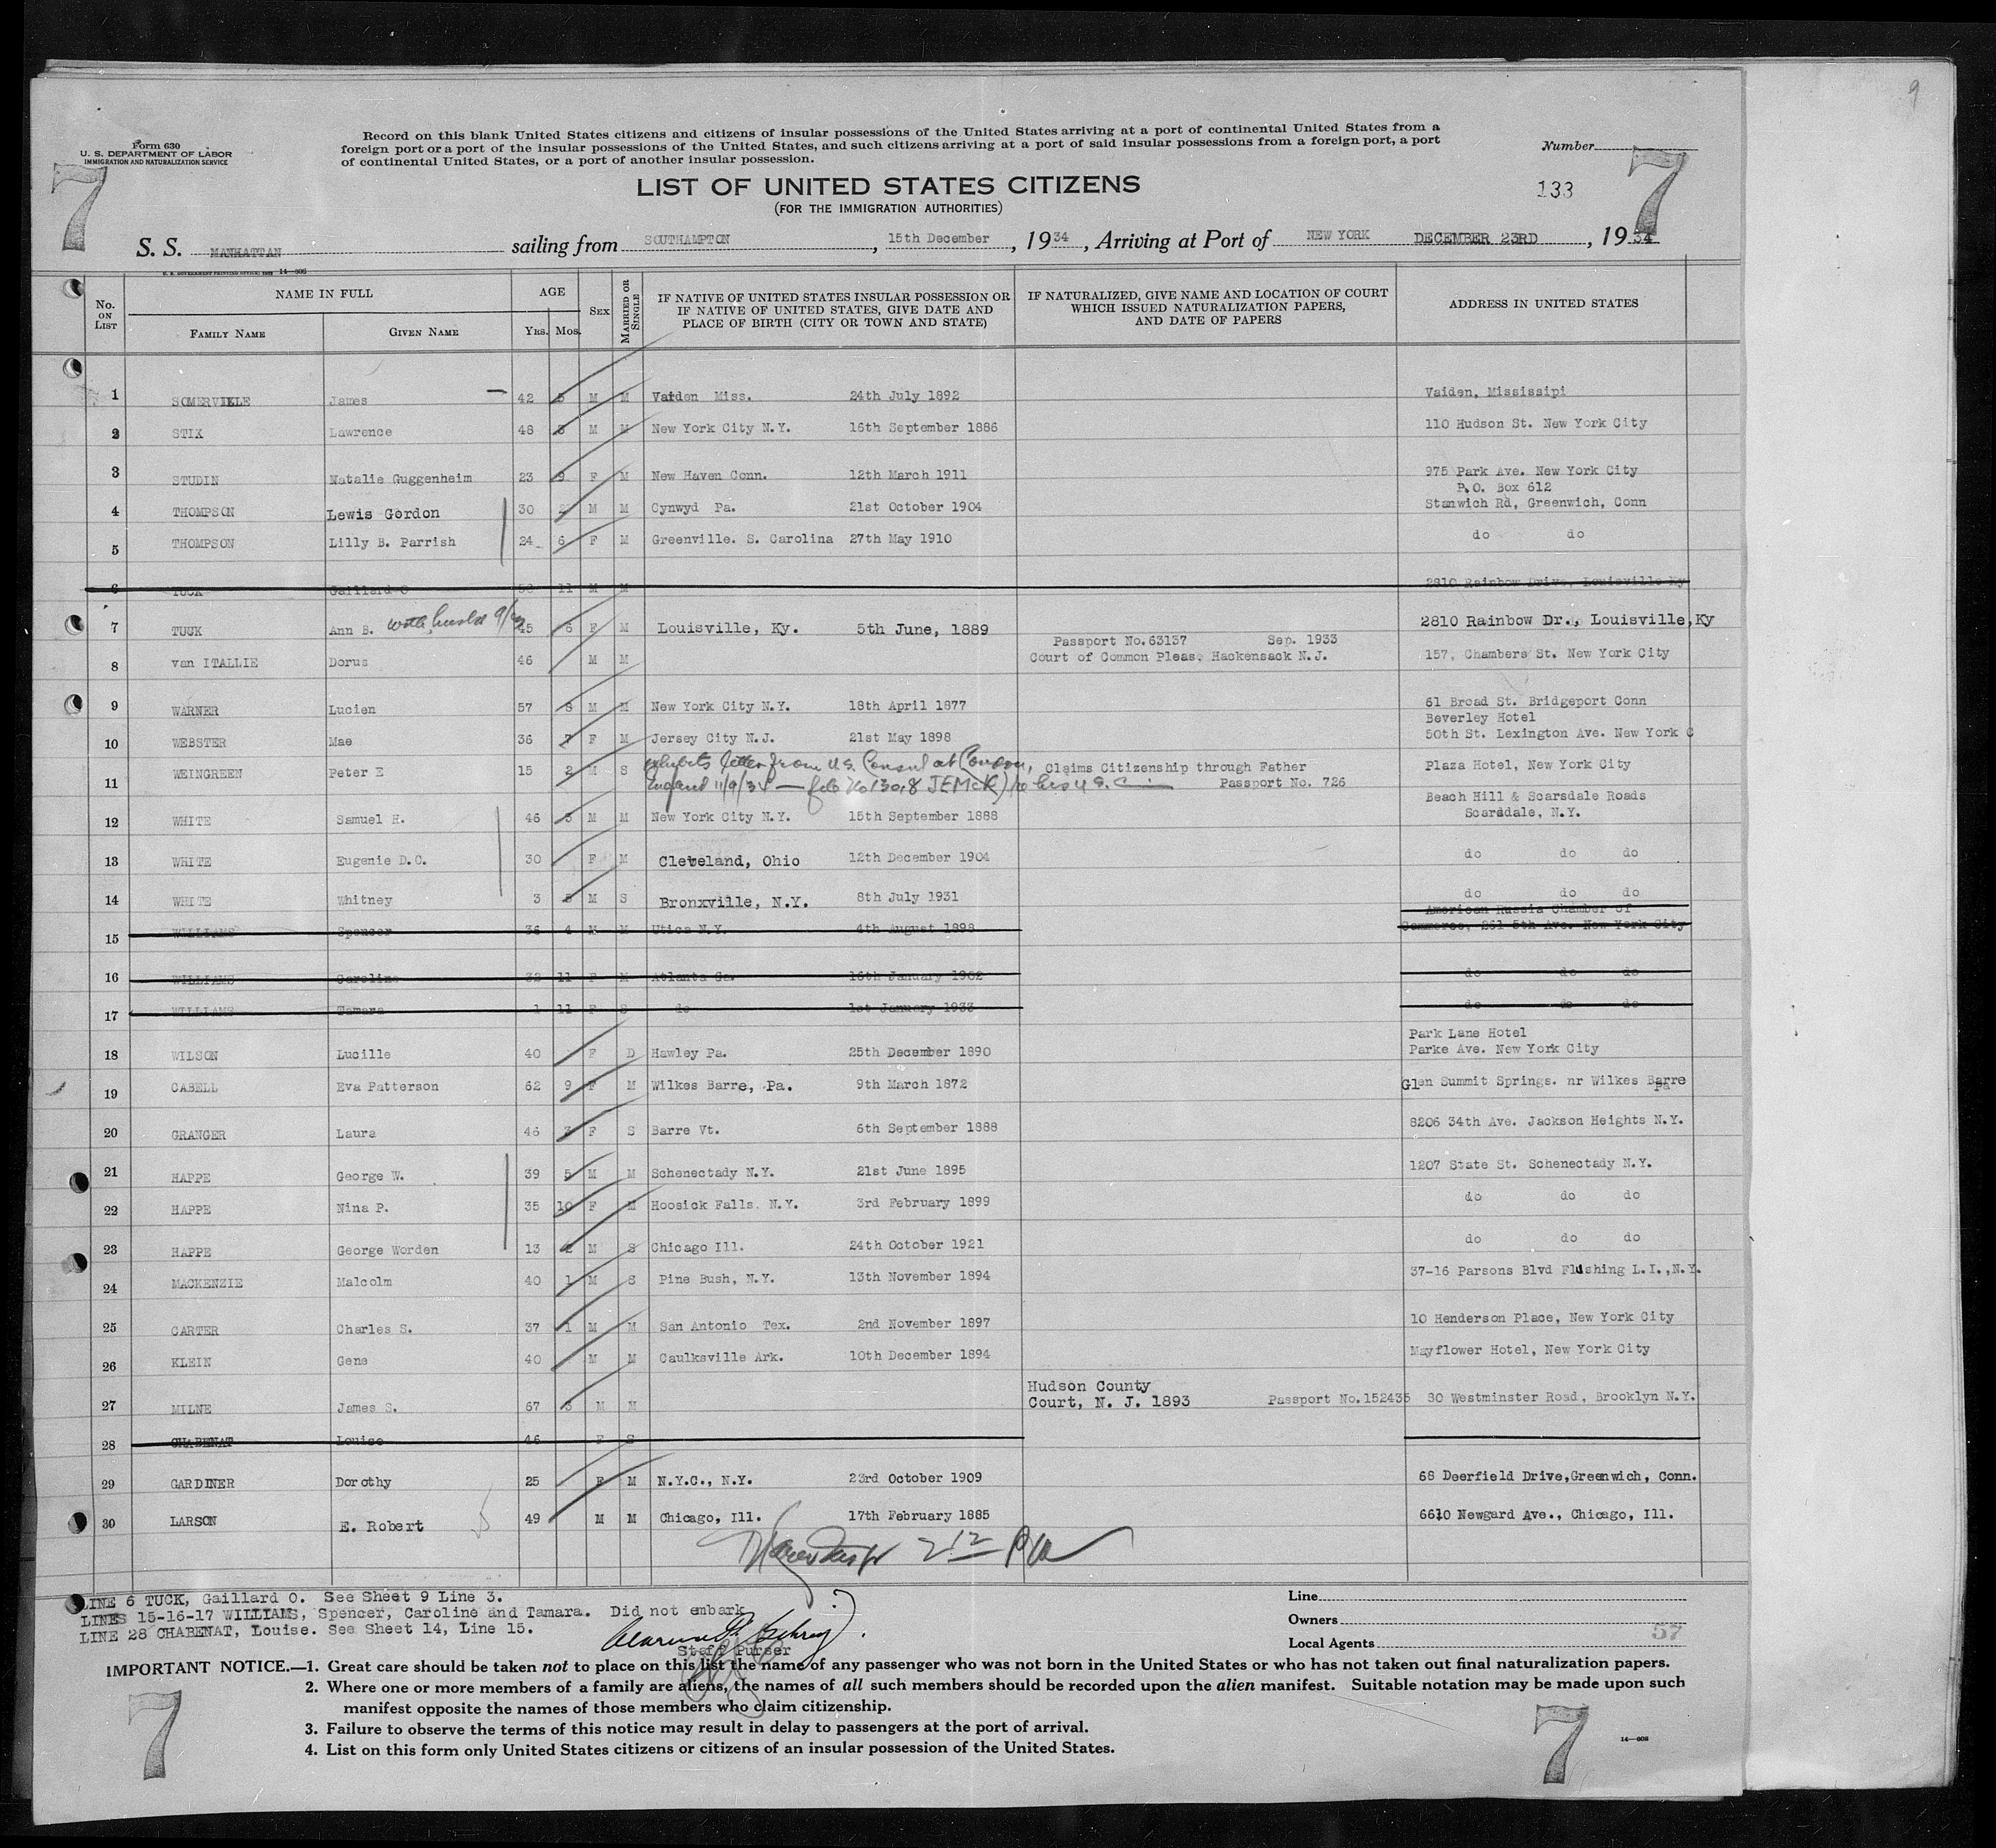 9
Form 630
U. S. DEPARTMENT OF LABOR
IMMIGRATION AND NATURALIZATION SERVICE
Record on this blank United States citizens and citizens of insular possessions of the United States arriving at a port of continental United States from a
foreign port or a port of the insular possessions of the United States, and such citizens arriving at a port of said insular possessions from a foreign port, a port
of continental United States, or a port of another insular possession.
Number
7
LIST OF UNITED STATES CITIZENS
133
7
(FOR THE IMMIGRATION AUTHORITIES)
S. S. MANHATTAN sailing from SOUTHAMPTON, 15th December, 1934, Arriving at Port of NEW YORK DECEMBER 23RD, 1934
U. S. GOVERNMENT PRINTING OFFICE: 14—608
No. ON LIST
NAME IN FULL
FAMILY NAME
GIVEN NAME
AGE
YRS. MOS.
SEX
MARRIED OR SINGLE
IF NATIVE OF UNITED STATES INSULAR POSSESSION OR
IF NATIVE OF UNITED STATES, GIVE DATE AND
PLACE OF BIRTH (CITY OR TOWN AND STATE)
IF NATURALIZED, GIVE NAME AND LOCATION OF COURT
WHICH ISSUED NATURALIZATION PAPERS,
AND DATE OF PAPERS
ADDRESS IN UNITED STATES
1 SOMERVILLE James — 42 5 M M Vaiden Miss. 24th July 1892 Vaiden, Mississipi
2 STIX Lawrence 48 3 M M New York City N.Y. 16th September 1886 110 Hudson St. New York City
3 STUDIN Natalie Guggenheim 23 9 F M New Haven Conn. 12th March 1911 975 Park Ave. New York City
P.O. Box 612
4 THOMPSON Lewis Gordon 30 2 M M Cynwyd Pa. 21st October 1904 Stanwich Rd, Greenwich, Conn
5 THOMPSON Lilly B. Parrish 24 6 F M Greenville. S. Carolina 27th May 1910 do do
6 TUCK Gaillard O 11 M M 2810 Rainbow Drive, Louisville Ky
7 TUCK Ann B. with husband 45 6 F M Louisville, Ky. 5th June, 1889 2810 Rainbow Dr., Louisville, Ky
Passport No. 63137 Sep. 1933
8 van ITALLIE Dorus 46 M M Court of Common Pleas. Hackensack N.J. 157, Chambers St. New York City
9 WARNER Lucien 57 8 M M New York City N.Y. 18th April 1877 61 Broad St. Bridgeport Conn
Beverley Hotel
10 WEBSTER Mae 36 7 F M Jersey City N.J. 21st May 1898 50th St. Lexington Ave. New York C
11 WEINGREEN Peter E 15 2 M S exhibits letter from U.S. Consul at London, Claims Citizenship through Father Plaza Hotel, New York City
England 11/9/34 — file No 130.8 JEMcK) re his U.S. Passport No. 726
Beach Hill & Scarsdale Roads
12 WHITE Samuel H. 46 3 M M New York City N.Y. 15th September 1888 Scarsdale, N.Y.
13 WHITE Eugenie D.C. 30 F M Cleveland, Ohio 12th December 1904 do do do
14 WHITE Whitney 3 5 M S Bronxville, N.Y. 8th July 1931 do do do
American Russia Chamber of
15 WILLIAMS Spencer 36 4 M M Utica N.Y. 4th August 1898 Commerce, 261 5th Ave. New York City
16 WILLIAMS Caroline 32 11 F M Atlanta Ga. 16th January 1902 do do do
17 WILLIAMS Tamara 1 11 F S do 1st January 1933 do do do
Park Lane Hotel
18 WILSON Lucille 40 F D Hawley Pa. 25th December 1890 Parke Ave. New York City
19 CABELL Eva Patterson 62 9 F M Wilkes Barre, Pa. 9th March 1872 Glen Summit Springs. nr Wilkes Barre
Pa
20 GRANGER Laura 46 3 F S Barre Vt. 6th September 1888 8206 34th Ave. Jackson Heights N.Y.
21 HAPPE George W. 39 5 M M Schenectady N.Y. 21st June 1895 1207 State St. Schenectady N.Y.
22 HAPPE Nina P. 35 10 F M Hoosick Falls. N.Y. 3rd February 1899 do do do
23 HAPPE George Worden 13 2 M S Chicago Ill. 24th October 1921 do do do
24 MACKENZIE Malcolm 40 1 M S Pine Bush, N.Y. 13th November 1894 37-16 Parsons Blvd Flushing L.I.,N.Y.
25 CARTER Charles S. 37 1 M M San Antonio Tex. 2nd November 1897 10 Henderson Place, New York City
26 KLEIN Gene 40 M M Caulksville Ark. 10th December 1894 Mayflower Hotel, New York City
Hudson County
27 MILNE James S. 67 3 M M Court, N. J. 1893 Passport No. 152435 80 Westminster Road, Brooklyn N.Y.
28 CHABENAT Louise 46 F S
29 GARDINER Dorothy 25 F M N.Y.C., N.Y. 23rd October 1909 68 Deerfield Drive, Greenwich, Conn.
30 LARSON E. Robert 49 M M Chicago, Ill. 17th February 1885 6610 Newgard Ave., Chicago, Ill.
LINE 6 TUCK, Gaillard O. See Sheet 9 Line 3.
LINES 15-16-17 WILLIAMS, Spencer, Caroline and Tamara. Did not embark
LINE 28 CHABENAT, Louise. See Sheet 14, Line 15.
Staff Purser
Line
Owners
Local Agents
57
IMPORTANT NOTICE.—1. Great care should be taken not to place on this list the name of any passenger who was not born in the United States or who has not taken out final naturalization papers.
2. Where one or more members of a family are aliens, the names of all such members should be recorded upon the alien manifest. Suitable notation may be made upon such
manifest opposite the names of those members who claim citizenship.
3. Failure to observe the terms of this notice may result in delay to passengers at the port of arrival.
4. List on this form only United States citizens or citizens of an insular possession of the United States.
7
7
14—608